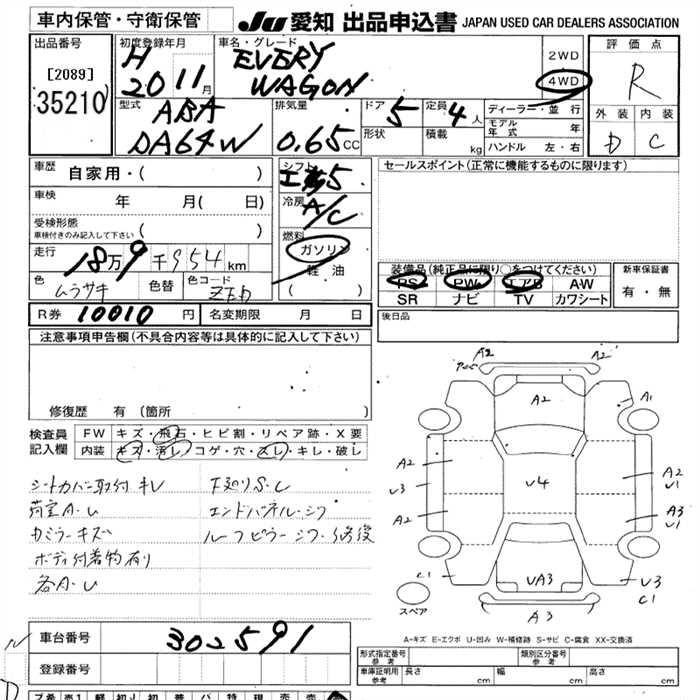 車内保管・守衛保管 JU 愛知 出品申込書 JAPAN USED CAR DEALERS ASSOCIATION
出品番号 [2089] 35210
初度登録年月 H 20 11月
車名・グレード EVERY WAGON
2WD 4WD
評価点 R
外装 内装 D C
型式 ABA DA64W
排気量 0.65 CC
ドア 5 定員 4人
形状 積載 kg
ディーラー・並行
モデル年式 年
ハンドル 左・右
車歴 自家用・( )
車検 年 月( 日)
受検形態 ( )
車検付きのみ記入して下さい
走行 18万9千954km
色 ムラサキ 色替 色コード ZED
シフト 5
冷房 A/C
燃料 ガソリン 軽油 ( )
セールスポイント(正常に機能するものに限ります)
装備品(純正品に限り○をつけてください)
PS PW エアB A・W
SR ナビ TV カワシート
新車保証書 有・無
R券 10010円 名変期限 月 日
後日品
注意事項申告欄(不具合内容等は具体的に記入して下さい)
修復歴 有(箇所 )
検査員記入欄
FW キズ・飛石・ヒビ割・リペア跡・X要
内装 キズ・汚レ・コゲ・穴・スレ・キレ・破レ
シートカバー取付 キレ
荷室A・U
カミラーキズ
ボディ付着物有り
各A・U
下廻りS・C
エンドパネル・シワ
ルーフピラーシワ・修後
A2 A2 A2 A1
A2 U3 A2
U4
A2 U1 A3 U1
C1 UA3 U3 C1
A3
スペア
A-キズ E-エクボ U-凹み W-補修跡 S-サビ C-腐食 XX-交換済
車台番号 302591
登録番号
形式指定番号 参考 類別区分番号 参考
車庫証明用 参考 長さ cm 幅 cm 高さ cm